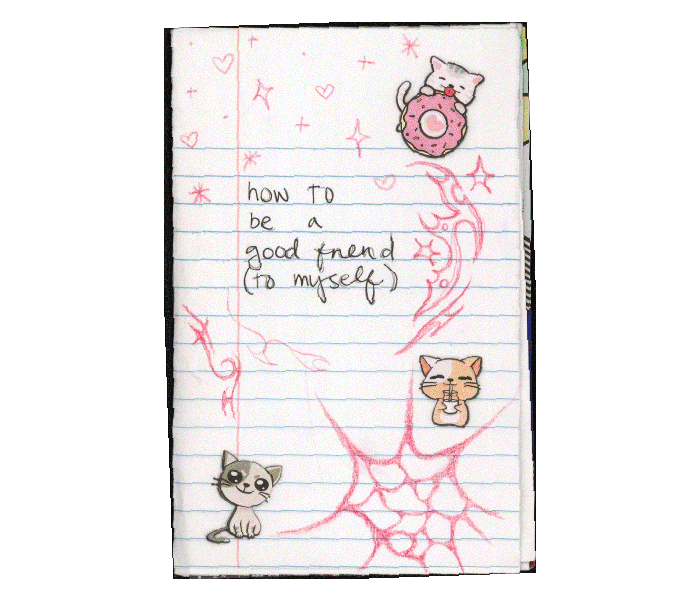 how to
be a
good friend
(to myself)